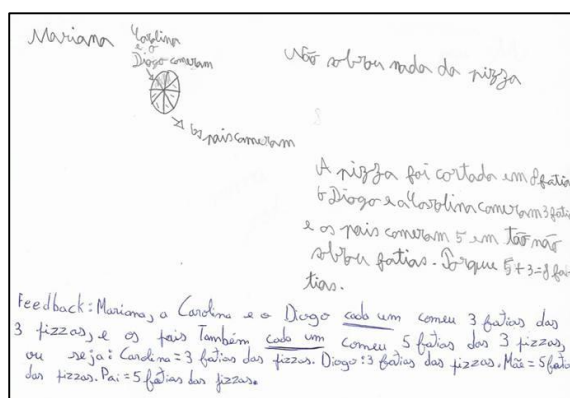 Mariana
Carolina
e o
Diogo comeram
Os pais comeram
Não sobrou nada da pizza
A pizza foi cortada em 8 fatia
o Diogo e a Carolina comeram 3 fatia
e os pais comeram 5 em tão não
sobrou fatias. Porque 5+3=8 fa
tias.
Feedback: Mariana, a Carolina e o Diogo cada um comeu 3 fatias das
3 pizzas, e os pais também cada um comeu 5 fatias das 3 pizzas,
ou seja: Carolina = 3 fatias das pizzas. Diogo: 3 fatias das pizzas. Mãe = 5 fatia
das pizzas. Pai = 5 fatias das pizzas.